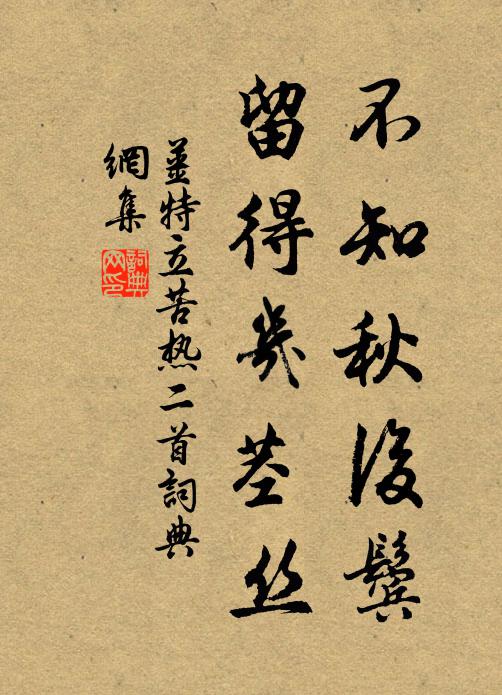 不知秋後鬓
留得幾茎丝
薑特立苦热二首詞典
網集
詞典
网印